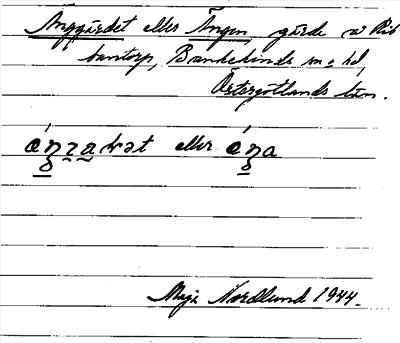 Änggärdet eller Ängen, gärde å Rib
bantorp, Bankekinds sn o hd,
Östergötlands län.
eller
Maja Nordlund 1944.